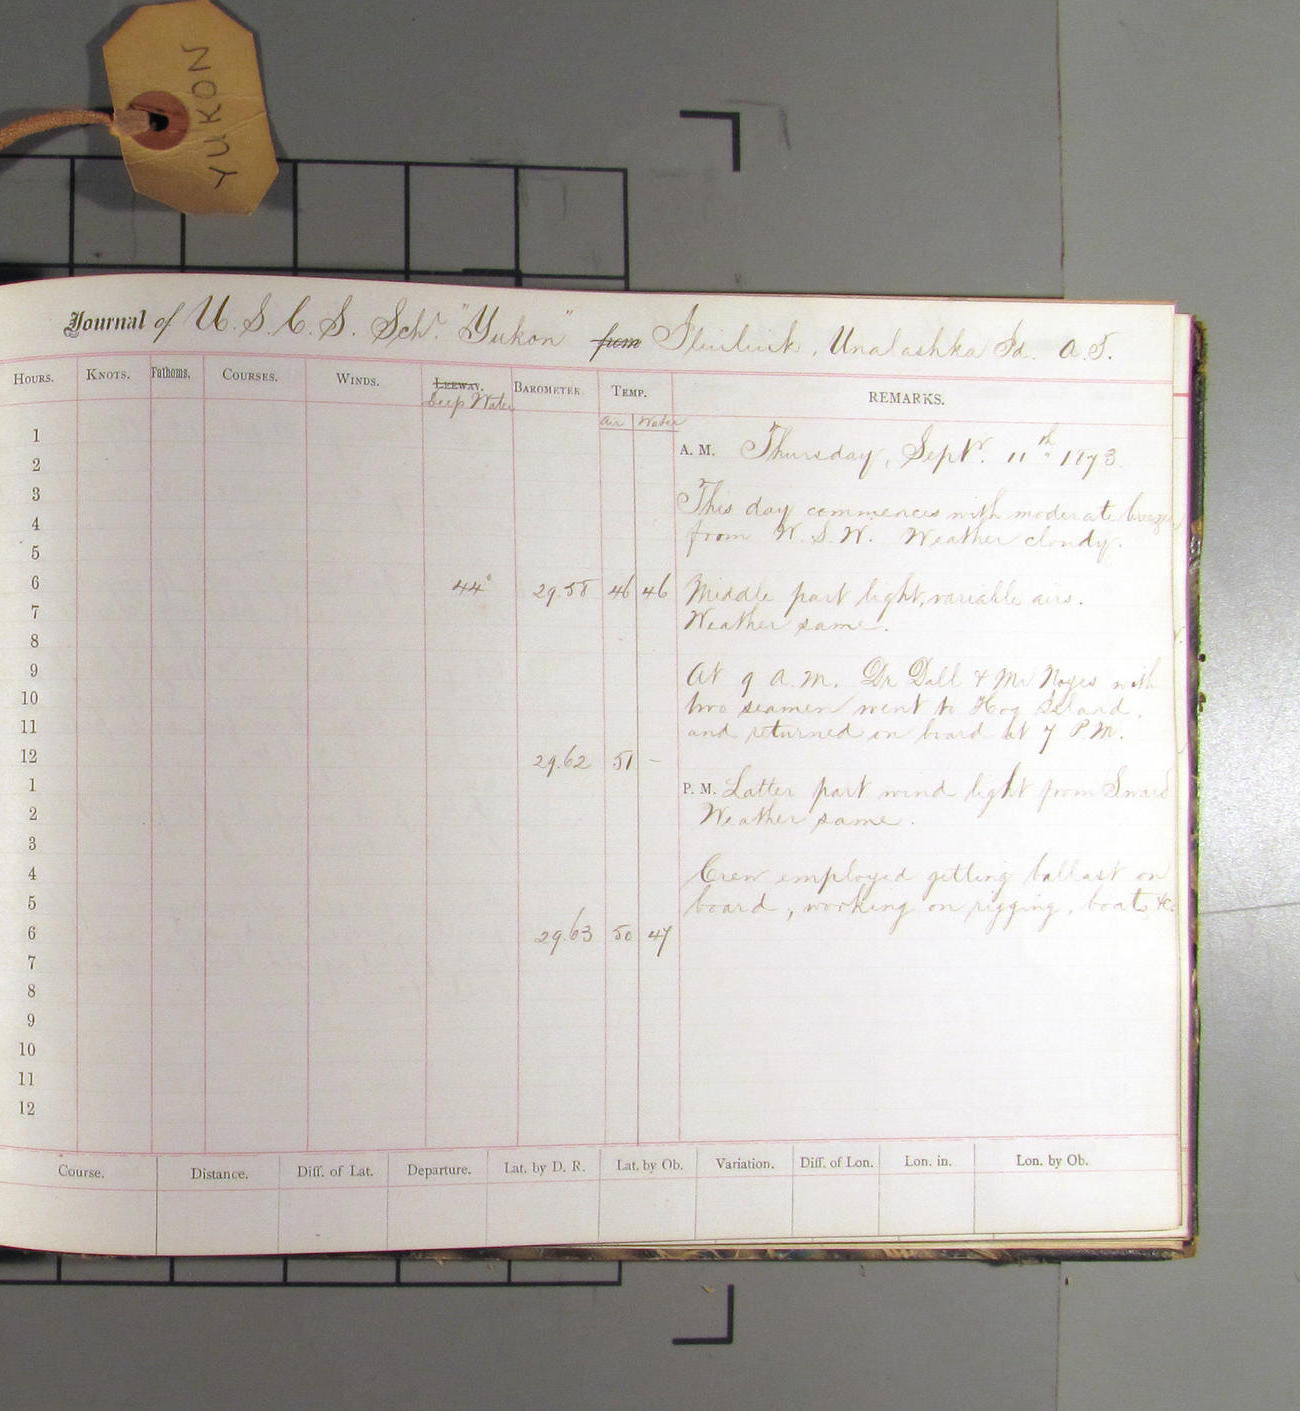 YUKON
Journal of U. S. C. S. Schr. "Yukon" from Iliuliuk, Unalashka Id. A. T.
HOURS. KNOTS. Fathoms. COURSES. WINDS. LEEWAY. BAROMETER. TEMP. REMARKS.
Deep Water
Air Water
1
A. M. Thursday, Sept. 11th 1873.
2
3
This day commences with moderate breezes
4
from W. S. W. Weather cloudy.
5
6 44° 29.58 46 46 Middle part light, variable airs.
7
Weather same.
8
9
At 9 A. M. Dr Dall & Mr Noyes with
10
two seamen went to Hog Island,
11
and returned on board at 7 P. M.
12 29.62 51 –
1
P. M. Latter part wind light from Sward
2
Weather same.
3
4
Crew employed getting ballast on
5
board, working on rigging, boats, &c.
6 29.63 50 47
7
8
9
10
11
12
Course. Distance. Diff. of Lat. Departure. Lat. by D. R. Lat. by Ob. Variation. Diff. of Lon. Lon. in. Lon. by Ob.